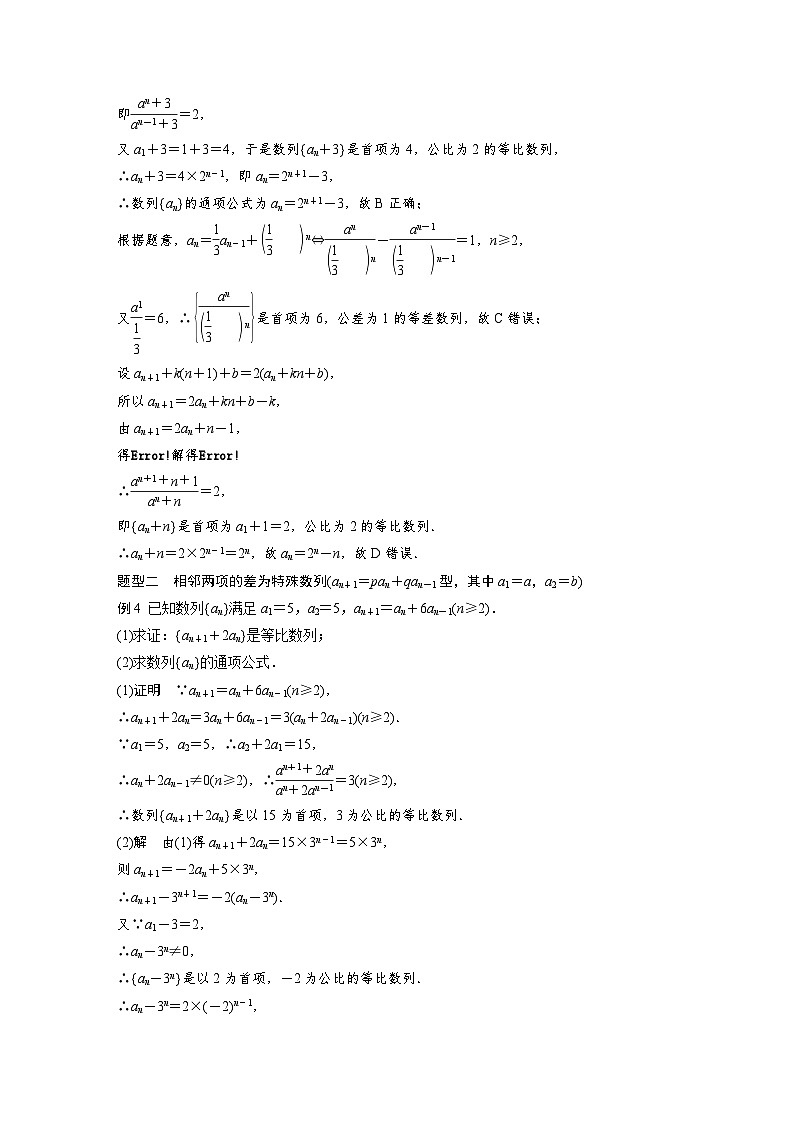 即(aⁿ+3)/(aⁿ⁻¹+3)=2,
又 a₁+3=1+3=4，于是数列{aₙ+3}是首项为 4，公比为 2 的等比数列，
∴aₙ+3=4×2ⁿ⁻¹，即 aₙ=2ⁿ⁺¹-3，
∴数列{aₙ}的通项公式为 aₙ=2ⁿ⁺¹-3，故 B 正确；
根据题意，aₙ=(1/3)aₙ₋₁+(1/3)n⇔aⁿ/((1/3)n)-aⁿ⁻¹/((1/3)n-1)=1，n≥2，
又a¹/(1/3)=6，∴{aⁿ/((1/3)n)}是首项为 6，公差为 1 的等差数列，故 C 错误；
设 aₙ₊₁+k(n+1)+b=2(aₙ+kn+b)，
所以 aₙ₊₁=2aₙ+kn+b-k，
由 aₙ₊₁=2aₙ+n-1，
得Error!解得Error!
∴(aⁿ⁺¹+n+1)/(aⁿ+n)=2，
即{aₙ+n}是首项为 a₁+1=2，公比为 2 的等比数列．
∴aₙ+n=2×2ⁿ⁻¹=2ⁿ，故 aₙ=2ⁿ-n，故 D 错误．
题型二　相邻两项的差为特殊数列(aₙ₊₁=paₙ+qaₙ₋₁型，其中 a₁=a，a₂=b)
例 4 已知数列{aₙ}满足 a₁=5，a₂=5，aₙ₊₁=aₙ+6aₙ₋₁(n≥2)．
(1)求证：{aₙ₊₁+2aₙ}是等比数列；
(2)求数列{aₙ}的通项公式．
(1)证明　∵aₙ₊₁=aₙ+6aₙ₋₁(n≥2)，
∴aₙ₊₁+2aₙ=3aₙ+6aₙ₋₁=3(aₙ+2aₙ₋₁)(n≥2)．
∵a₁=5，a₂=5，∴a₂+2a₁=15，
∴aₙ+2aₙ₋₁≠0(n≥2)，∴(aⁿ⁺¹+2aⁿ)/(aⁿ+2aⁿ⁻¹)=3(n≥2)，
∴数列{aₙ₊₁+2aₙ}是以 15 为首项，3 为公比的等比数列．
(2)解　由(1)得 aₙ₊₁+2aₙ=15×3ⁿ⁻¹=5×3ⁿ，
则 aₙ₊₁=-2aₙ+5×3ⁿ，
∴aₙ₊₁-3ⁿ⁺¹=-2(aₙ-3ⁿ)．
又∵a₁-3=2，
∴aₙ-3ⁿ≠0，
∴{aₙ-3ⁿ}是以 2 为首项，-2 为公比的等比数列．
∴aₙ-3ⁿ=2×(-2)ⁿ⁻¹，